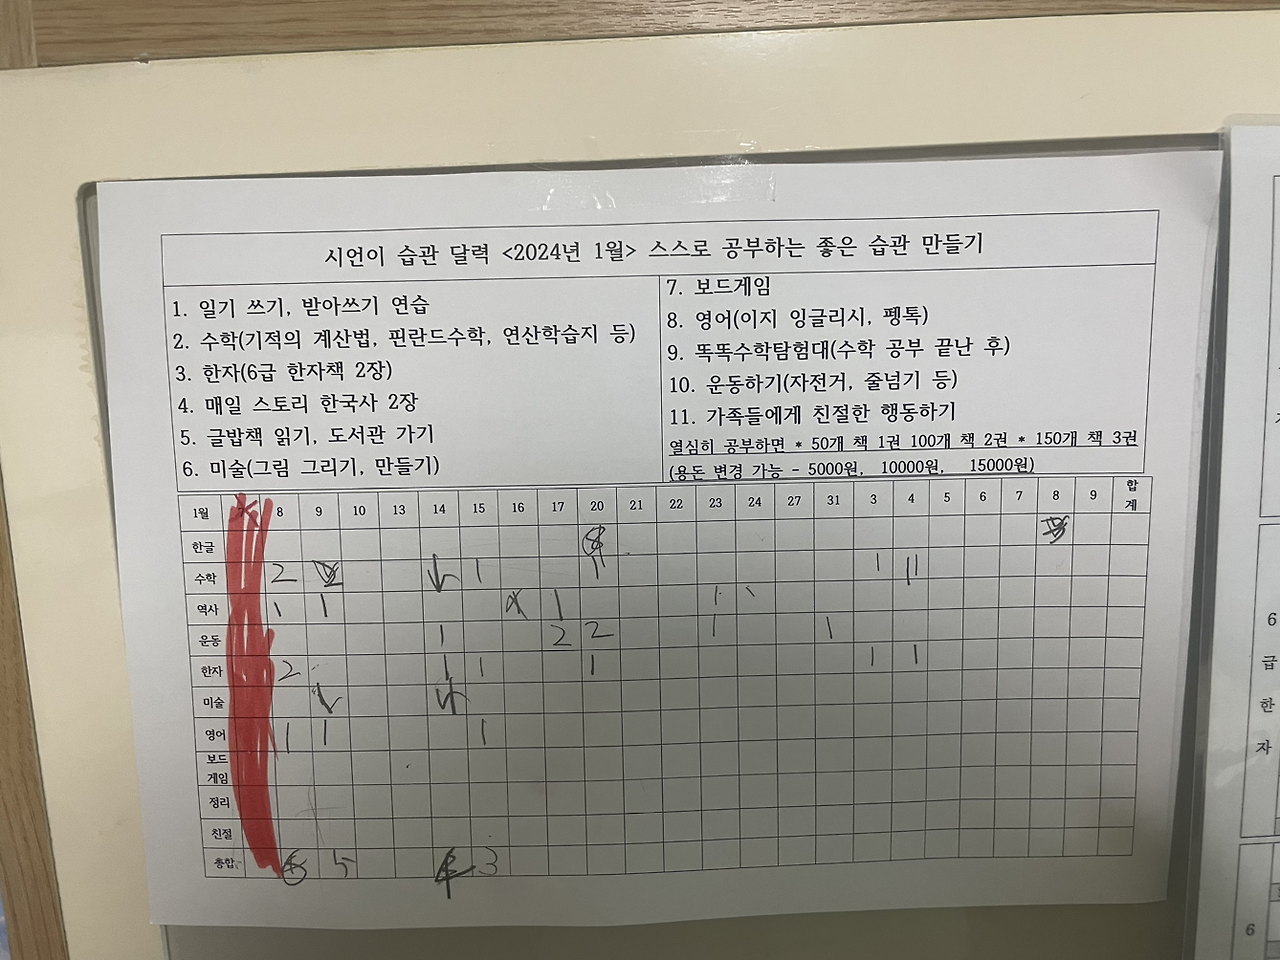 시언이 습관 달력 <2024년 1월> 스스로 공부하는 좋은 습관 만들기
1. 일기 쓰기, 받아쓰기 연습
2. 수학(기적의 계산법, 핀란드수학, 연산학습지 등)
3. 한자(6급 한자책 2장)
4. 매일 스토리 한국사 2장
5. 글밥책 읽기, 도서관 가기
6. 미술(그림 그리기, 만들기)
7. 보드게임
8. 영어(이지 잉글리시, 펭톡)
9. 똑똑수학탐험대(수학 공부 끝난 후)
10. 운동하기(자전거, 줄넘기 등)
11. 가족들에게 친절한 행동하기
열심히 공부하면 * 50개 책 1권 100개 책 2권 * 150개 책 3권
(용돈 변경 가능 - 5000원, 10000원, 15000원)
1월 8 9 10 13 14 15 16 17 20 21 22 23 24 27 31 3 4 5 6 7 8 9 합계
한글
수학 2 1 1 1 11
역사 1 1 1 1
운동 1 2 2 1 1
한자 2 1 1 1 1 1
미술
영어 1 1 1
보드
게임
정리
친절
총합 5 3
6
급
한
자
6